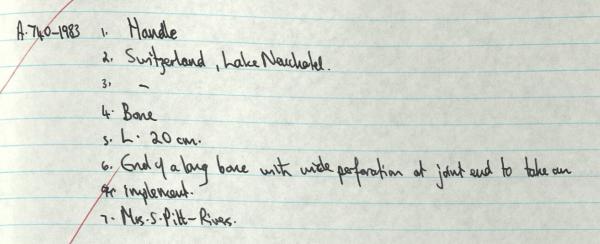 A.740-1983 1. Handle
2. Switzerland, Lake Neuchatel.
3. -
4. Bone
5. L. 20 cm.
6. End of a long bone with wide perforation at joint end to take an
implement.
7. Mrs. S. Pitt-Rivers.